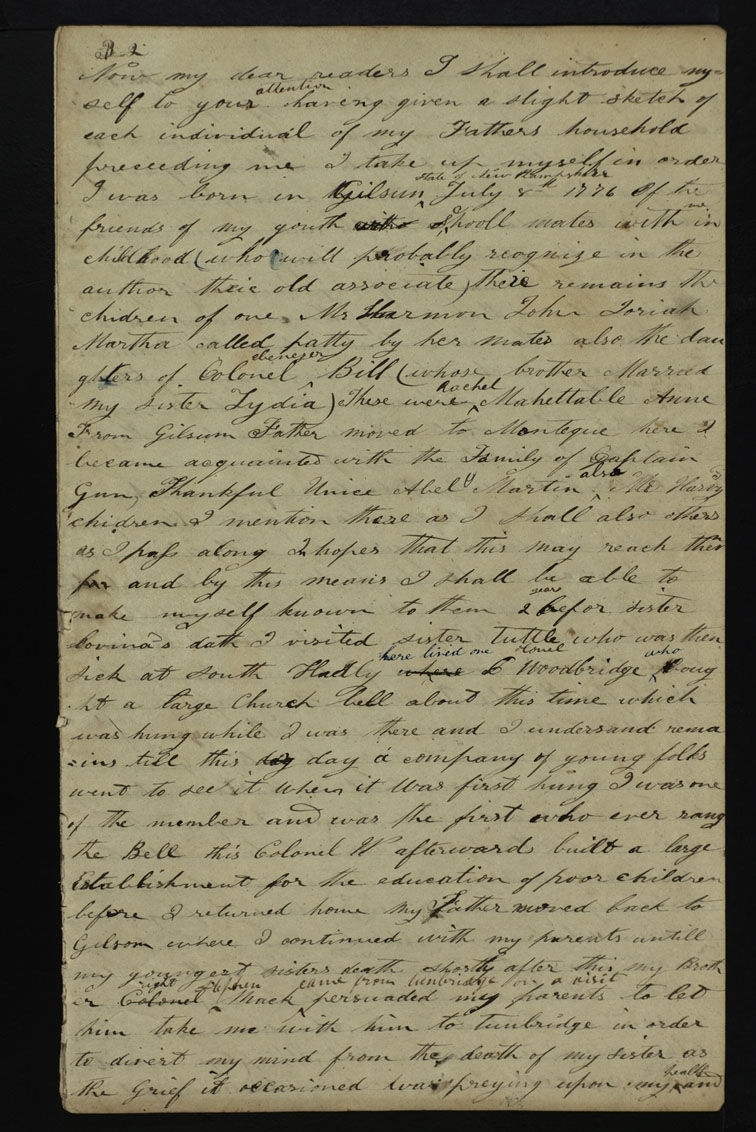 B 2
Now my dear readers I shall introduce my=
self to your attention having given a slight sketch of
each individual of my Fathers household
preceeding me I take up myself in order
I was born in Gilsum, state of New Hampshire July 8th 1776 Of the
friends of my youth Shooll mates with me in
childhood (who will probably reognize in the
author theie old associate) theie remains the
chidren of one Mr Harmon John Joriah
Martha called patty by her mates also the dau
ghters of Colonel ebenezer Bill (whose brother Married
my sister Lydia) These were Rachel Mahettable Anne
From Gilsum Father moved to Montegue here I
became acquainted with the Family of Captain
Gun, Thankful Unice Abel & Martin also Mr Harvy
chidren I mention these as I shall also others
as I pass along In hopes that this may reach them
and by this means I shall be able to
make myself known to them 2 years befor sister
lovina's dath I visited sister tuttle who was then
sick at South Hadly where here lived one Colonel Woodbridge who boug
ht a large Church bell about this time which
was hung while I was there and I undersand rema
=ins till this day day a company of young folks
went to see it when it was first hung I was one
of the member and was the first who ever rang
the Bell this Colonel W afterwards built a large
Establishment for the education of poor children
before I returned home My Father moved back to
Gilsom where I continued with my parents untill
my youngest sisters death shortly after this my Broth
er Colonel Stephen Mack came from tunbridge on a visit persuaded my parents to let
him take me with him to tunbridge in order
to divert my mind from the death of my sister as
the Grief it occasioned was preying upon my health and